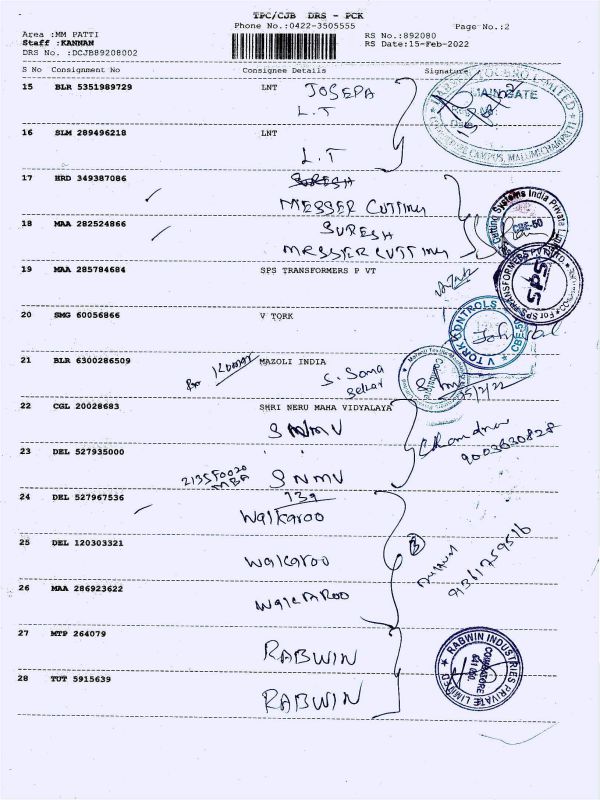 TPC/CJB DRS - PCK
Phone No.:0422-3505555
Page No.:2
Area :MM PATTI
Staff :KANNAN
DRS No. :DCJB89208002
RS No.:892080
RS Date:15-Feb-2022
S No Consignment No Consignee Details Signature
15 BLR 5351989729 LNT JOSEPA
L.T
MAIN GATE
16 SLM 289496218 LNT
L.T
17 HRD 349387086 SURESH
MESSER CUTTING
18 MAA 282524866 SURESH
MESSER CUTTING
Cutting Systems India Private
CBE-50
19 MAA 285784684 SPS TRANSFORMERS P VT
For SPS TRANSFORMERS PVT LTD
SPS
20 SMG 60056866 V TORK
V TORK CONTROLS
21 BLR 6300286509 Kumar MAZOLI INDIA
S. Soma
Sekar
22 CGL 20028683 SHRI NERU MAHA VIDYALAYA
SNMV
Chandran
9003630828
23 DEL 527935000
2135F0020
MBA
SNMV
139
24 DEL 527967536
Walkaroo
25 DEL 120303321
Walkaroo
3
26 MAA 286923622
WALKAROO
27 MTP 264079
RABWIN
28 TUT 5915639
RABWIN
RABWIN INDUSTRIES PRIVATE LIMITED
COIMBATORE